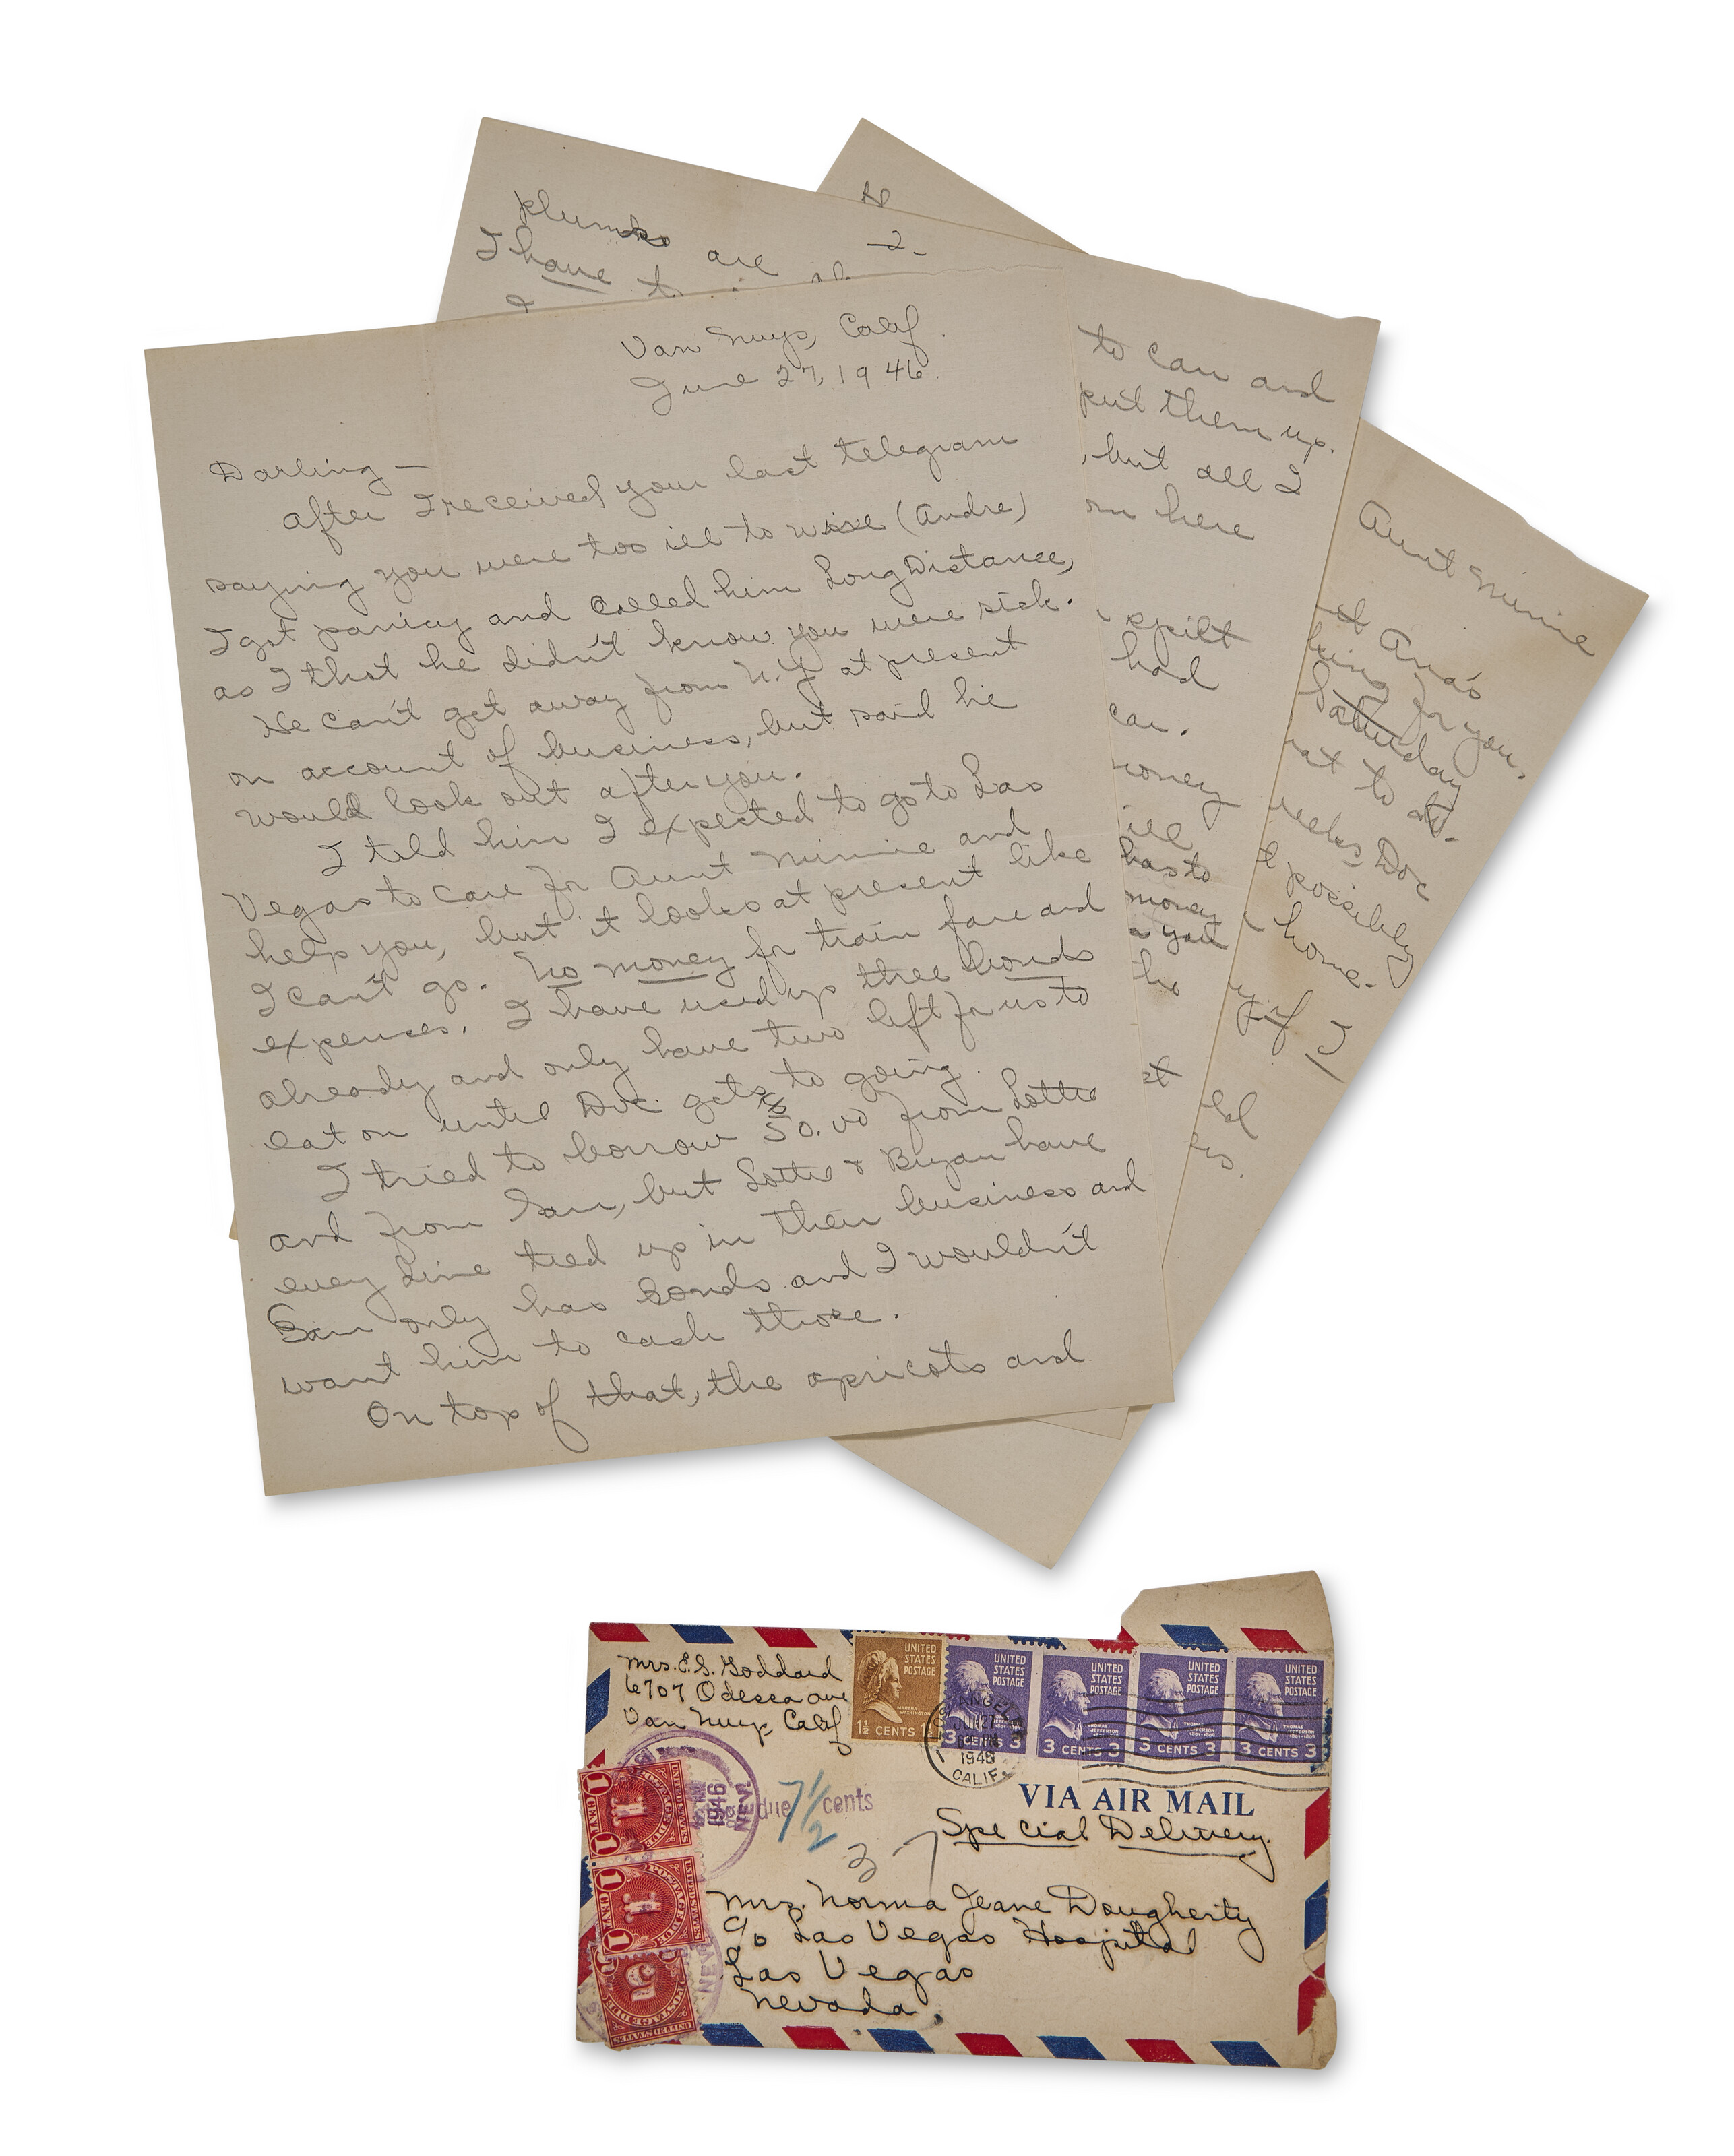 plums are
I have to
-2-
to can and
put them up.
, but all I
here
spilt
had
car.
money
ill
has to
money
you
Aunt Minnie
Ana's
for you.
Saturday
to do.
weeks, Doc
possibly
home.
if I
Van Nuys, Calif.
June 27, 1946.
Darling —
After I received your last telegram
saying you were too ill to wire (Andre)
I got panicy and called him Long Distance,
as I that he didn't know you were sick.
He can't get away from N.Y. at present
on account of business, but said he
would look out after you.
I told him I expected to go to Las
Vegas to care for Aunt Minnie and
help you, but it looks at present like
I can't go. No money for train fare and
expenses. I have used up three bonds
already and only have two left for us to
eat on until Doc gets to going.
I tried to borrow 50.00 from Lottie
and from Sam, but Lottie & Bryan have
every dime tied up in their business and
Sam only has bonds and I wouldn't
want him to cash those.
On top of that, the apricots and
Mrs. E.S. Goddard
6707 Odessa ave
Van Nuys, Calif
UNITED STATES POSTAGE
MARTHA WASHINGTON
1½ CENTS
UNITED STATES POSTAGE
3 CENTS 3
UNITED STATES POSTAGE
THOMAS JEFFERSON
3 CENTS 3
UNITED STATES POSTAGE
THOMAS JEFFERSON
3 CENTS 3
UNITED STATES POSTAGE
THOMAS JEFFERSON
3 CENTS 3
LOS ANGELES
JUN 27
1946
CALIF.
1946
NEV.
due 7 1/2 cents
VIA AIR MAIL
Special Delivery.
37
Mrs. Norma Jeane Dougherty
c/o Las Vegas Hospital
Las Vegas
Nevada.
UNITED STATES
POSTAGE DUE
1 CENT 1
UNITED STATES
POSTAGE DUE
1 CENT 1
UNITED STATES
POSTAGE DUE
5
NEV.